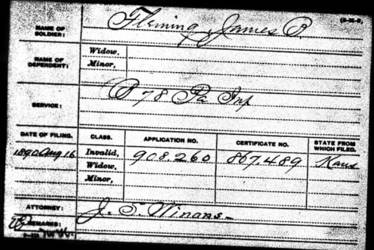 NAME OF SOLDIER: Fleming, James P
NAME OF DEPENDENT: Widow,
Minor,
SERVICE: D 78 Pa Inf
DATE OF FILING. CLASS. APPLICATION NO. CERTIFICATE NO. STATE FROM WHICH FILED.
1890 Aug 16 Invalid, 908.260 867.489 Kans
Widow,
Minor,
ATTORNEY: J. S. Winans
REMARKS: